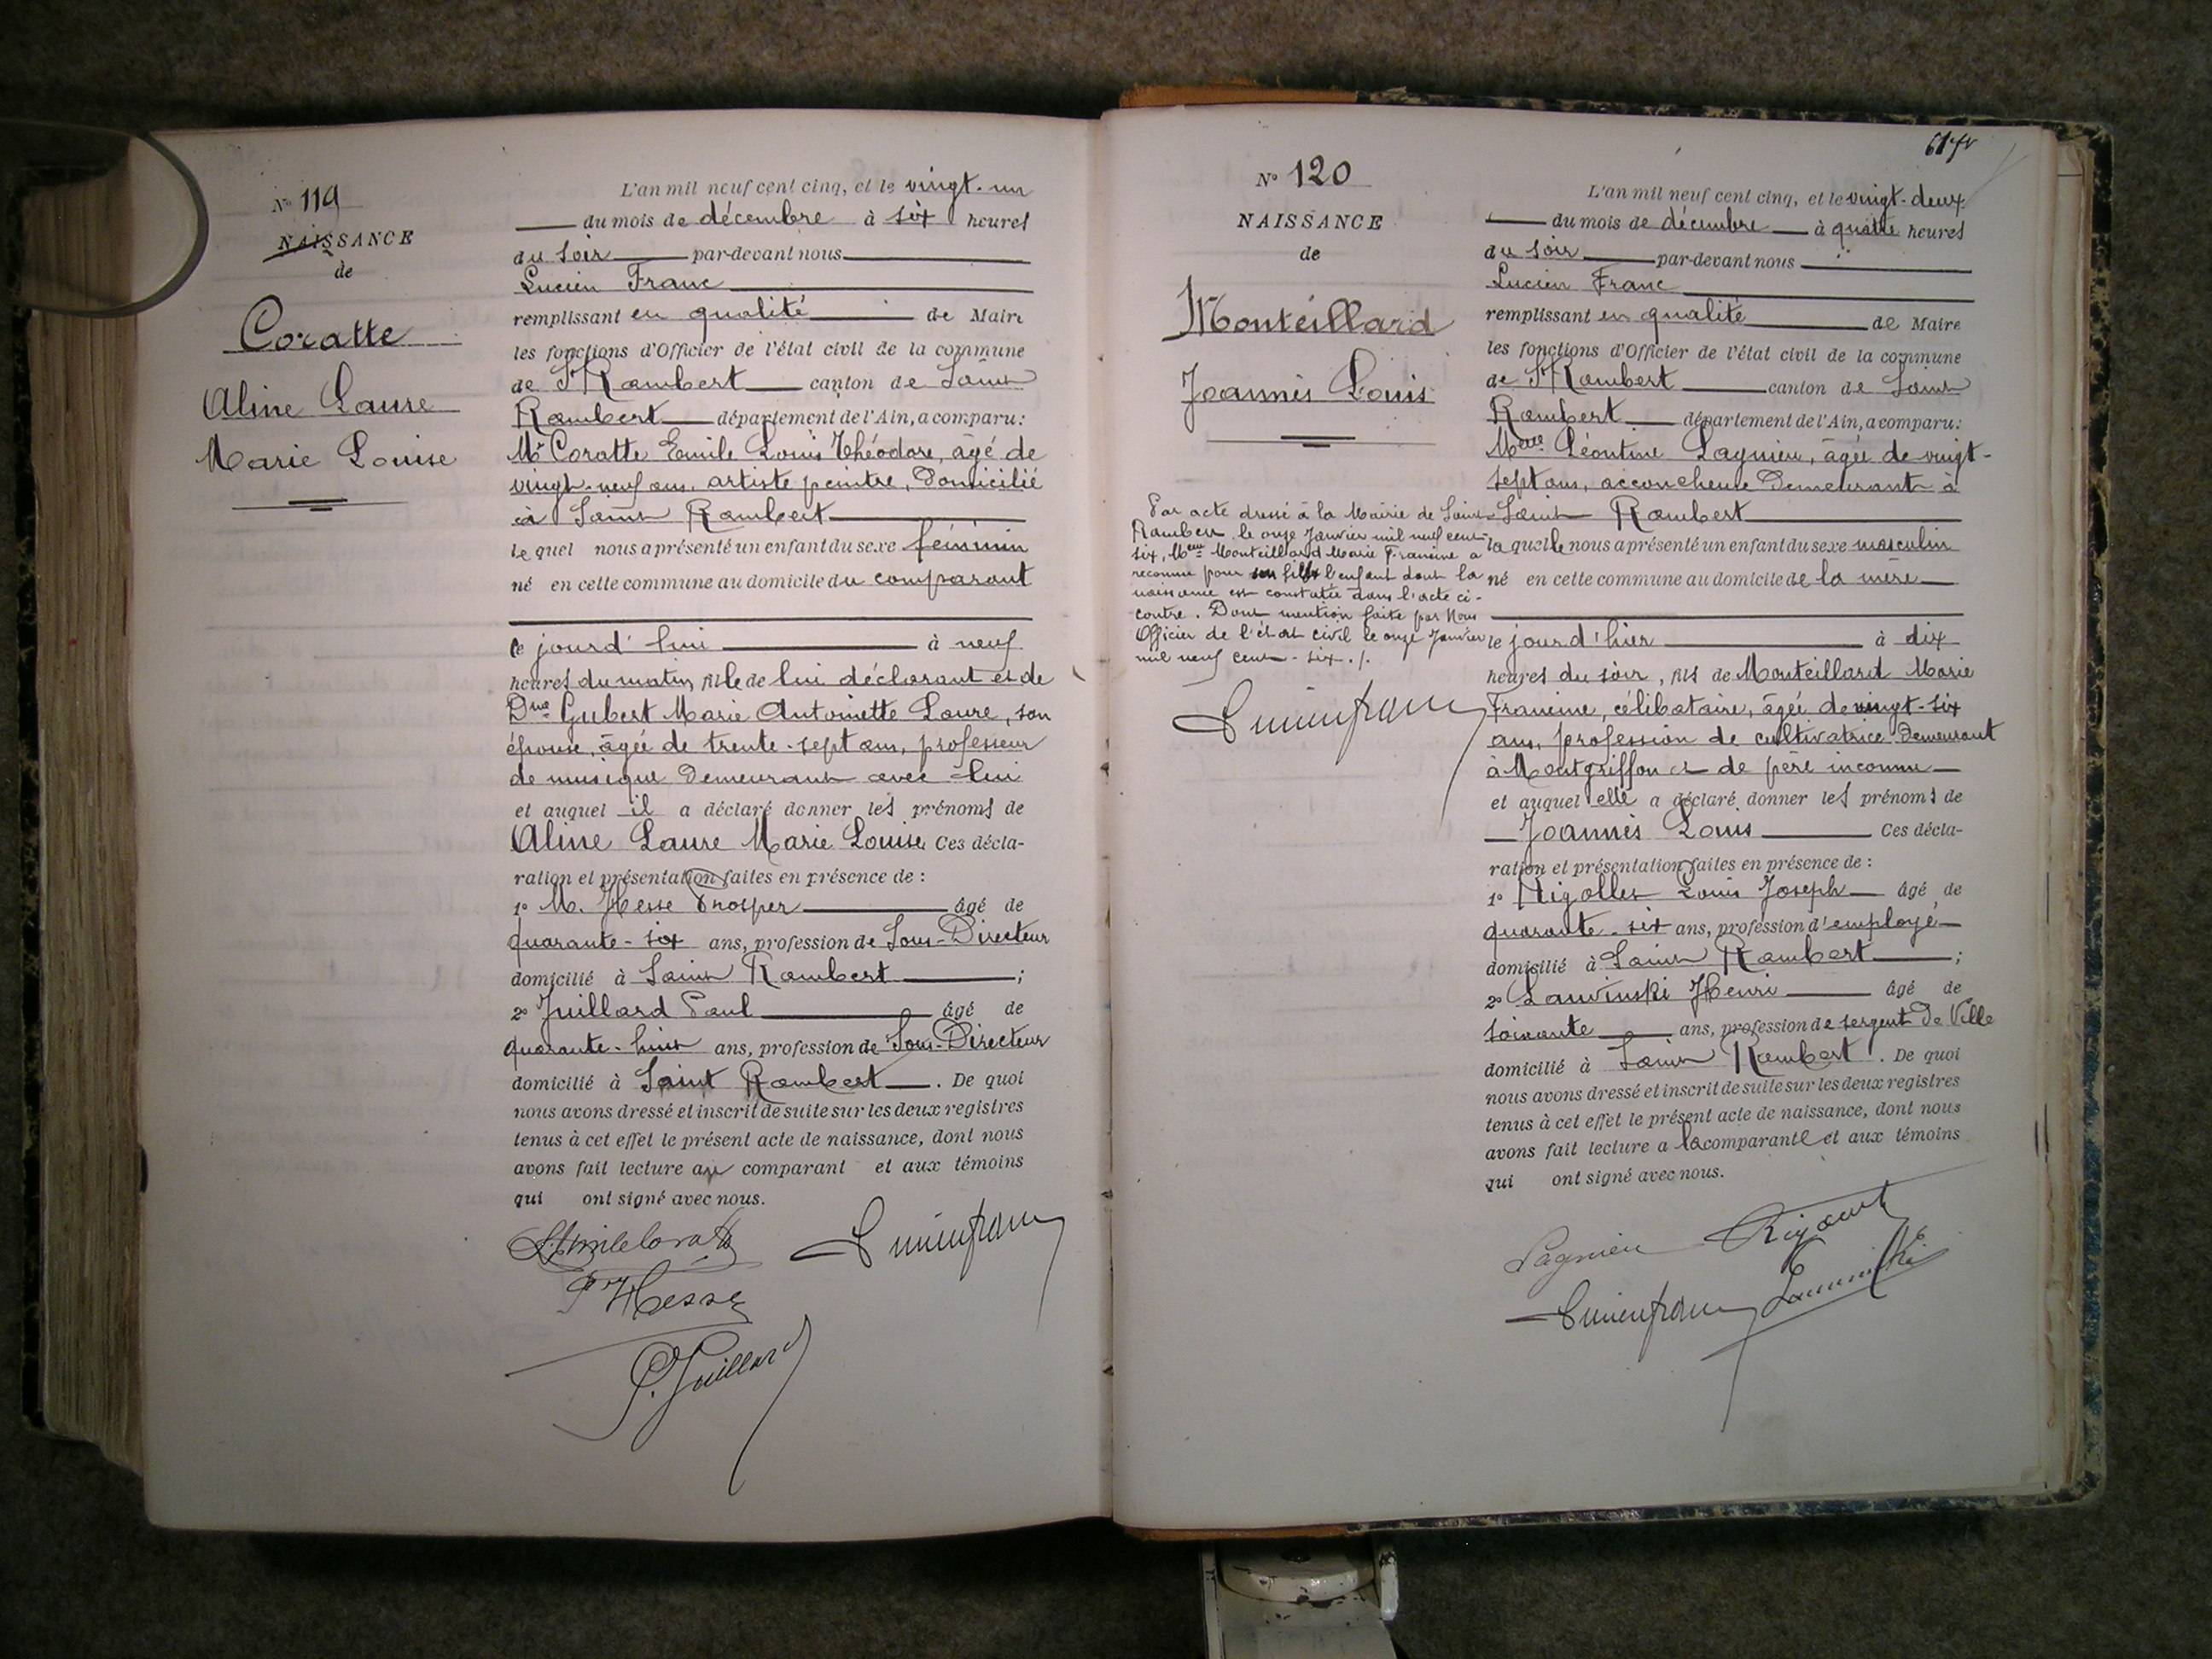 N° 119
NAISSANCE
de
Coratte
Aline Laure
Marie Louise
L'an mil neuf cent cinq, et le vingt-un
du mois de décembre à six heures
du soir par-devant nous
Lucien Franc
remplissant en qualité de Maire
les fonctions d'Officier de l'état civil de la commune
de St Rambert canton de Saint
Rambert département de l'Ain, a comparu:
Mr Coratte Emile Louis Théodore, âgé de
vingt-neuf ans, artiste peintre, domicilié
à Saint Rambert
lequel nous a présenté un enfant du sexe féminin
né en cette commune au domicile du comparant
le jourd'hui à neuf
heures du matin, fille de lui déclarant et de
Dme Gubert Marie Antoinette Laure, son
épouse, âgée de trente-sept ans, professeur
de musique demeurant avec lui
et auquel il a déclaré donner les prénoms de
Aline Laure Marie Louise Ces décla-
ration et présentation faites en présence de :
1° M. Hesse Prosper âgé de
quarante-six ans, profession de Sous-Directeur
domicilié à Saint Rambert ;
2° Juillard Paul âgé de
quarante-huit ans, profession de Sous-Directeur
domicilié à Saint Rambert. De quoi
nous avons dressé et inscrit de suite sur les deux registres
tenus à cet effet le présent acte de naissance, dont nous
avons fait lecture au comparant et aux témoins
qui ont signé avec nous.
Lucien Franc
P. Hesse
P. Juillard
N° 120
NAISSANCE
de
Monteillard
Joannès Louis
Par acte dressé à la Mairie de Saint
Rambert le onze Janvier mil neuf cent
six, Melle Monteillard Marie Francine a
reconnu pour son fils l'enfant dont la
naissance est constatée dans l'acte ci-
contre. Dont mention faite par Nous
Officier de l'état civil le onze Janvier
mil neuf cent-six./.
Lucien Franc
L'an mil neuf cent cinq, et le vingt-deux
du mois de décembre à quatre heures
du soir par-devant nous
Lucien Franc
remplissant en qualité de Maire
les fonctions d'Officier de l'état civil de la commune
de St Rambert canton de Saint
Rambert département de l'Ain, a comparu:
Mme Léontine Lagnieu, âgée de vingt-
sept ans, accoucheuse demeurant à
Saint Rambert
laquelle nous a présenté un enfant du sexe masculin
né en cette commune au domicile de la mère
le jourd'hier à dix
heures du soir, fils de Monteillard Marie
Francine, célibataire, âgée de vingt-six
ans, profession de cultivatrice demeurant
à Montgriffon et de père inconnu
et auquel elle a déclaré donner les prénoms de
Joannès Louis Ces décla-
ration et présentation faites en présence de :
1° Louis Joseph âgé de
quarante-six ans, profession d'employé
domicilié à Saint Rambert ;
2° Lawinski Henri âgé de
soixante ans, profession de sergent de Ville
domicilié à Saint Rambert. De quoi
nous avons dressé et inscrit de suite sur les deux registres
tenus à cet effet le présent acte de naissance, dont nous
avons fait lecture a la comparante et aux témoins
qui ont signé avec nous.
Lagnieu
Lucien Franc